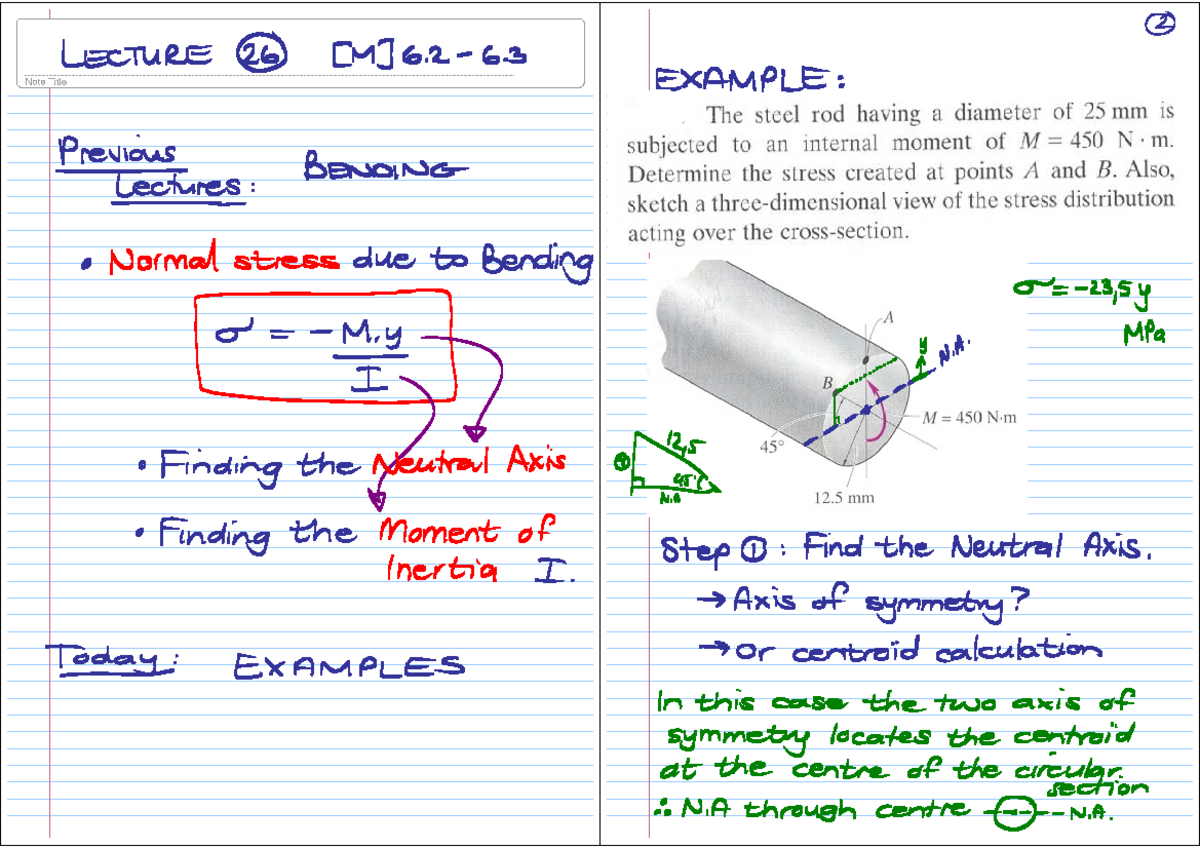 LECTURE 26 [M] 6.2 - 6.3
Note Title
Previous
Lectures: BENDING
• Normal stress due to Bending
σ = - M.y
I
• Finding the Neutral Axis
• Finding the Moment of
Inertia I.
Today: EXAMPLES
2
EXAMPLE:
The steel rod having a diameter of 25 mm is
subjected to an internal moment of M = 450 N · m.
Determine the stress created at points A and B. Also,
sketch a three-dimensional view of the stress distribution
acting over the cross-section.
σ = -23,5 y
MPa
A
y
N.A.
B
M = 450 N·m
45°
12.5 mm
12,5
45°
N.A
Step ①: Find the Neutral Axis.
→ Axis of symmetry?
→ Or centroid calculation
In this case the two axis of
symmetry locates the centroid
at the centre of the circular.
section
∴ N.A through centre --N.A.